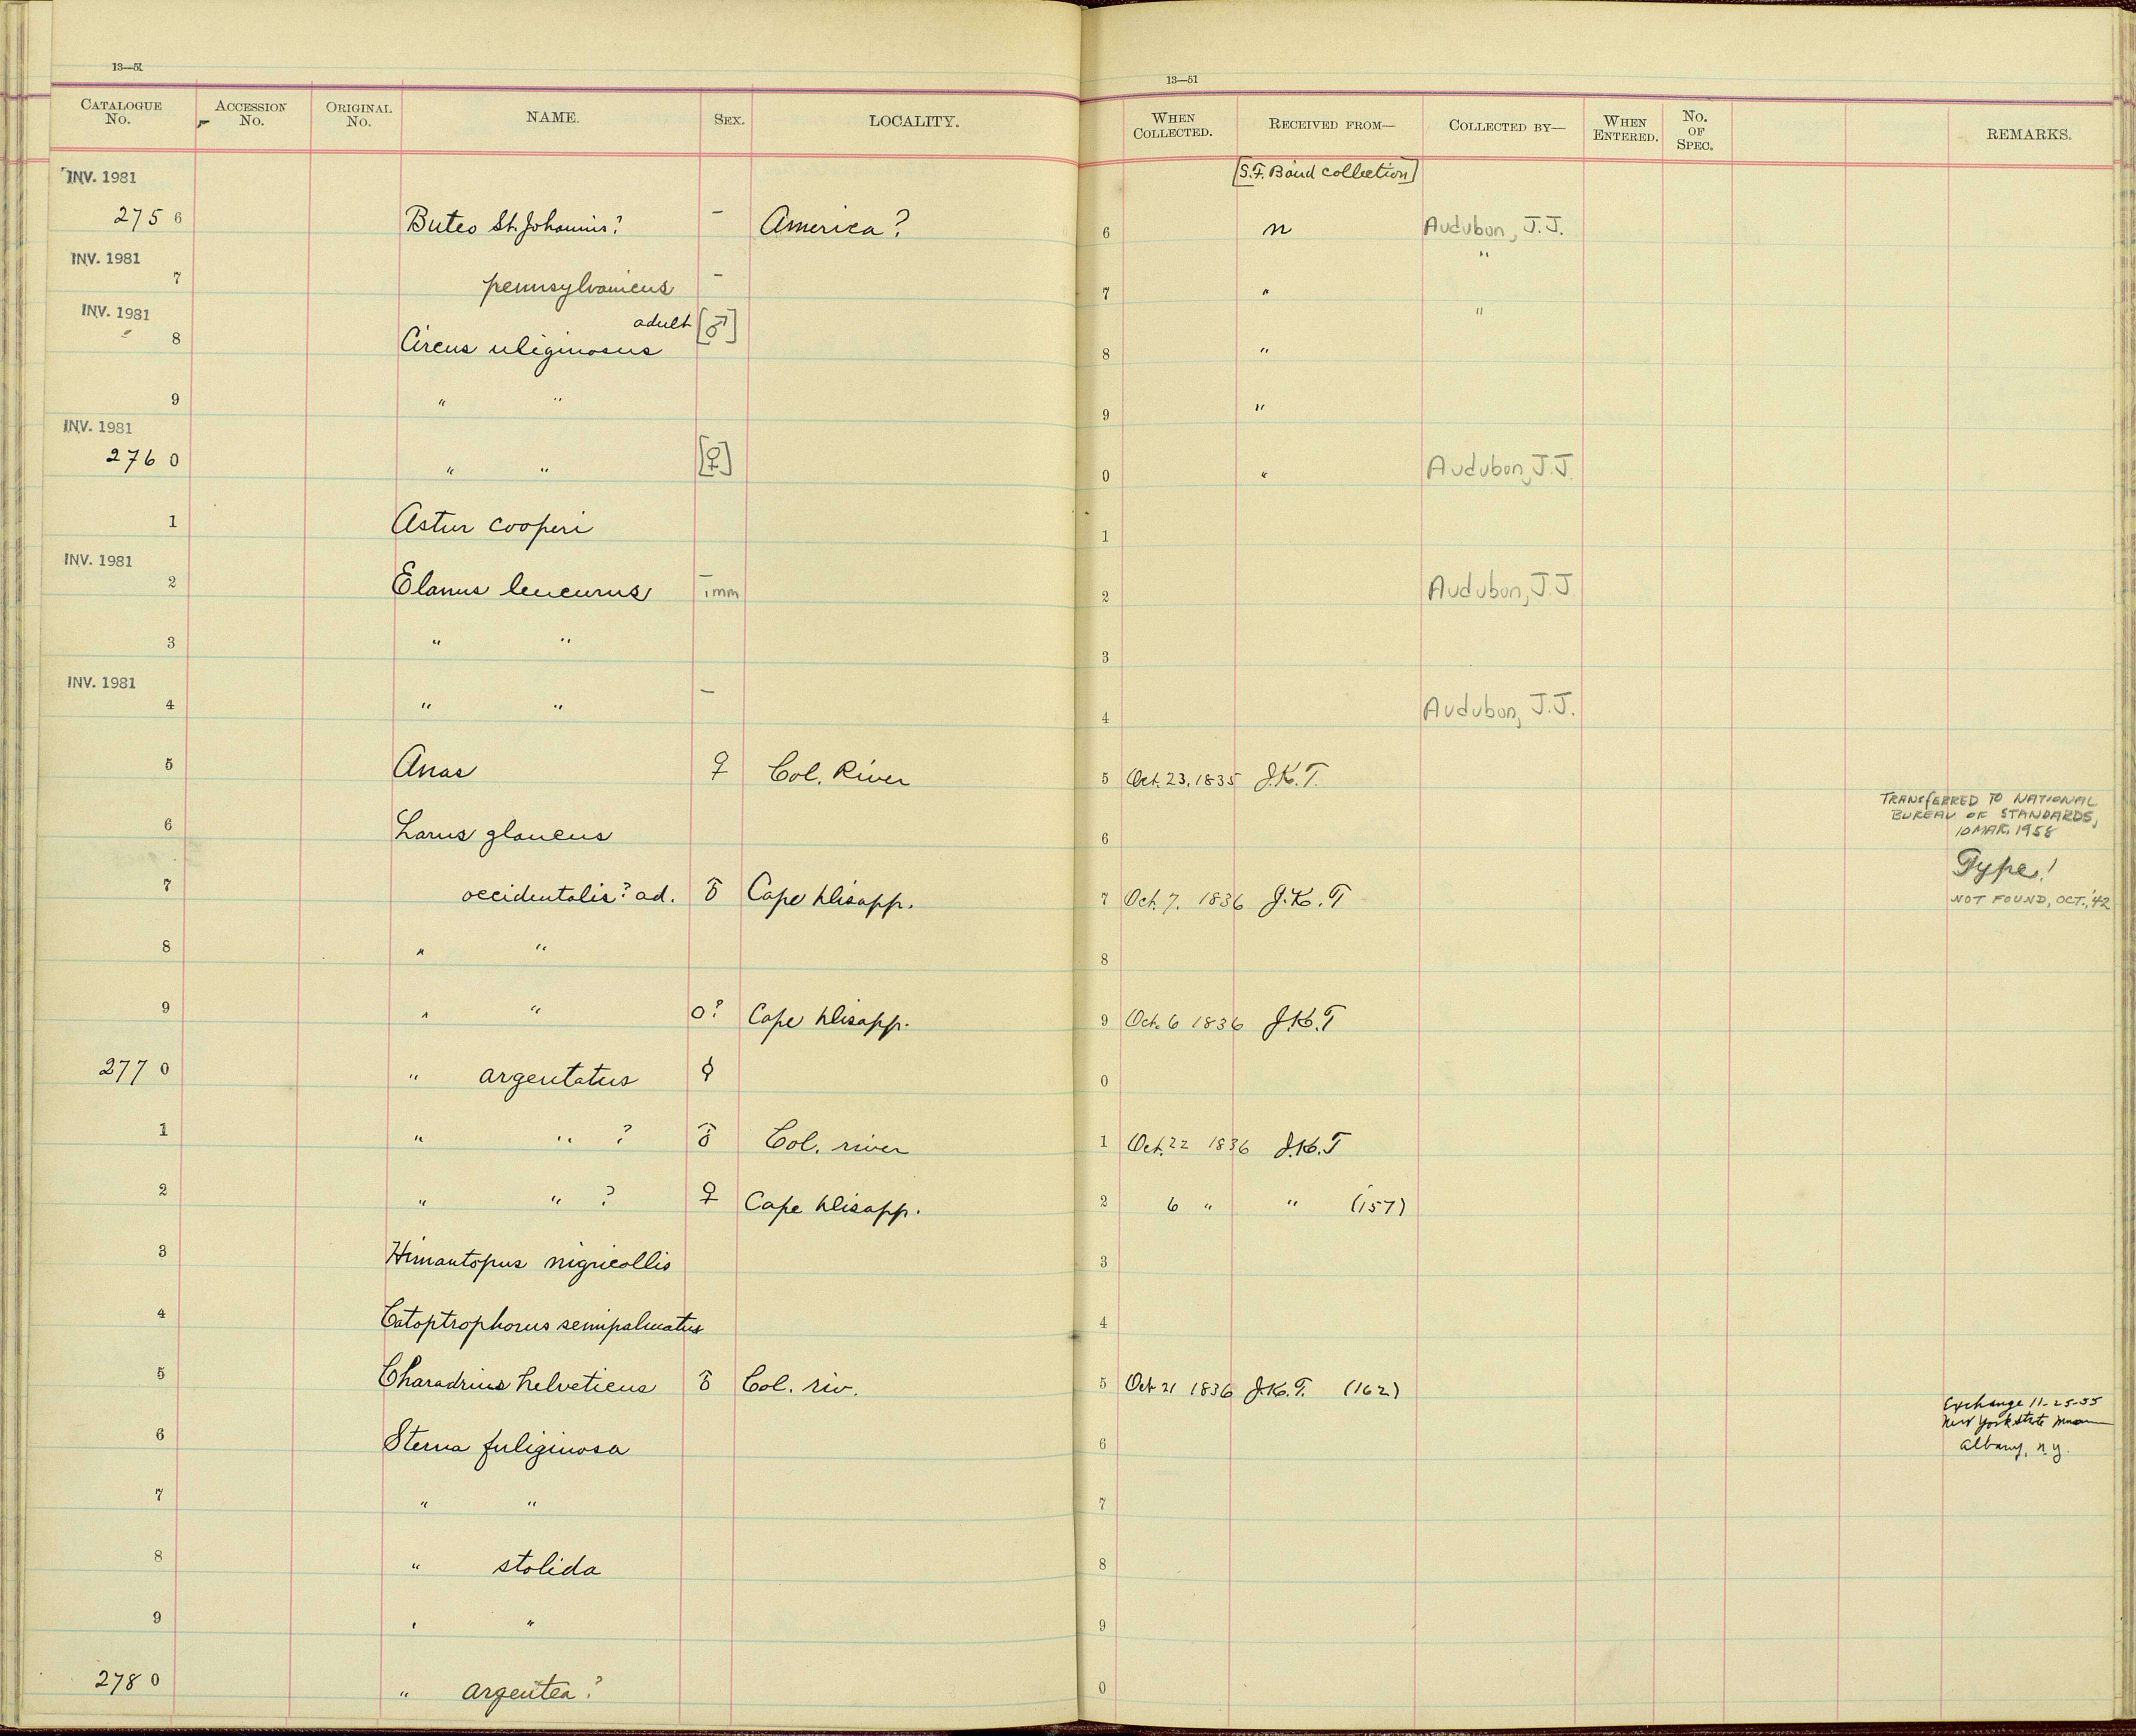 13—51
CATALOGUE No. ACCESSION No. ORIGINAL No. NAME. SEX. LOCALITY.
13—51
WHEN COLLECTED. RECEIVED FROM— COLLECTED BY— WHEN ENTERED. No. OF SPEC. REMARKS.
INV. 1981 [S.F. Baird collection]
2756 Buteo St. Johannis? – America? 6 " Audubon, J.J.
INV. 1981 "
7 pennsylvanicus – 7 "
INV. 1981 adult [♂] "
8 Circus uliginosus 8 "
9 " " 9 "
INV. 1981
2760 " " [♀] 0 " Audubon, J.J.
1 Astur cooperi 1
INV. 1981 –
2 Elanus leucurus imm 2 Audubon, J.J.
3 " " 3
INV. 1981
4 " " – 4 Audubon, J.J.
5 Anas ♀ Col. River 5 Oct. 23. 1835 J.K.T.
TRANSFERRED TO NATIONAL
BUREAU OF STANDARDS,
10 MAR. 1958
6 Larus glaucus 6
Type!
7 occidentalis? ad. ♂ Cape Disapp. 7 Oct. 7. 1836 J.K.T
NOT FOUND, OCT., '42
8 " " 8
9 " " o? Cape Disapp. 9 Oct. 6 1836 J.K.T
2770 " argentatus 0
1 " " ? ♂ Col. river 1 Oct. 22 1836 J.K.T
2 " " ? ♀ Cape Disapp. 2 6 " " (157)
3 Himantopus nigricollis 3
4 Catoptrophorus semipalmatus 4
5 Charadrius helveticus ♂ Col. riv. 5 Oct 21 1836 J.K.T. (162)
Exchange 11-25-55
New York State Museum
Albany, N.Y.
6 Sterna fuliginosa 6
7 " " 7
8 " stolida 8
9 " " 9
2780 " argentea? 0